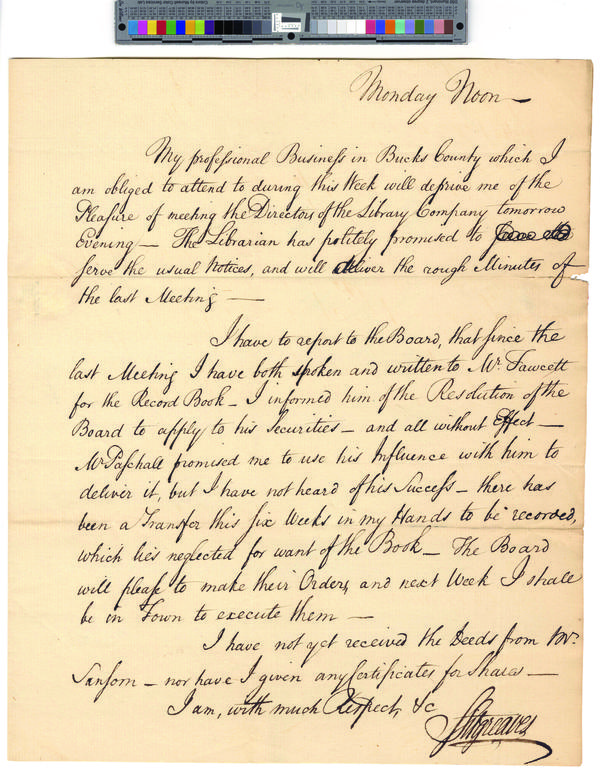 Monday Noon —
My professional Business in Bucks County which I
am obliged to attend to during this Week will deprive me of the
Pleasure of meeting the Directors of the Library Company tomorrow
Evening — The Librarian has politely promised to
serve the usual Notices, and will deliver the rough Minutes of
the last Meeting —
I have to report to the Board, that since the
last Meeting I have both spoken and written to Mr. Fawcett
for the Record Book — I informed him of the Resolution of the
Board to apply to his Securities — and all without Effect —
Mr Paschall promised me to use his Influence with him to
deliver it, but I have not heard of his Success — there has
been a Transfer this six Weeks in my Hands to be recorded,
which lies neglected for want of the Book — The Board
will please to make their Orders, and next Week I shall
be in Town to execute them —
I have not yet received the Deeds from Mr.
Sansom — nor have I given any Certificates for Shares —
I am, with much Respect, &c
Sitgreaves